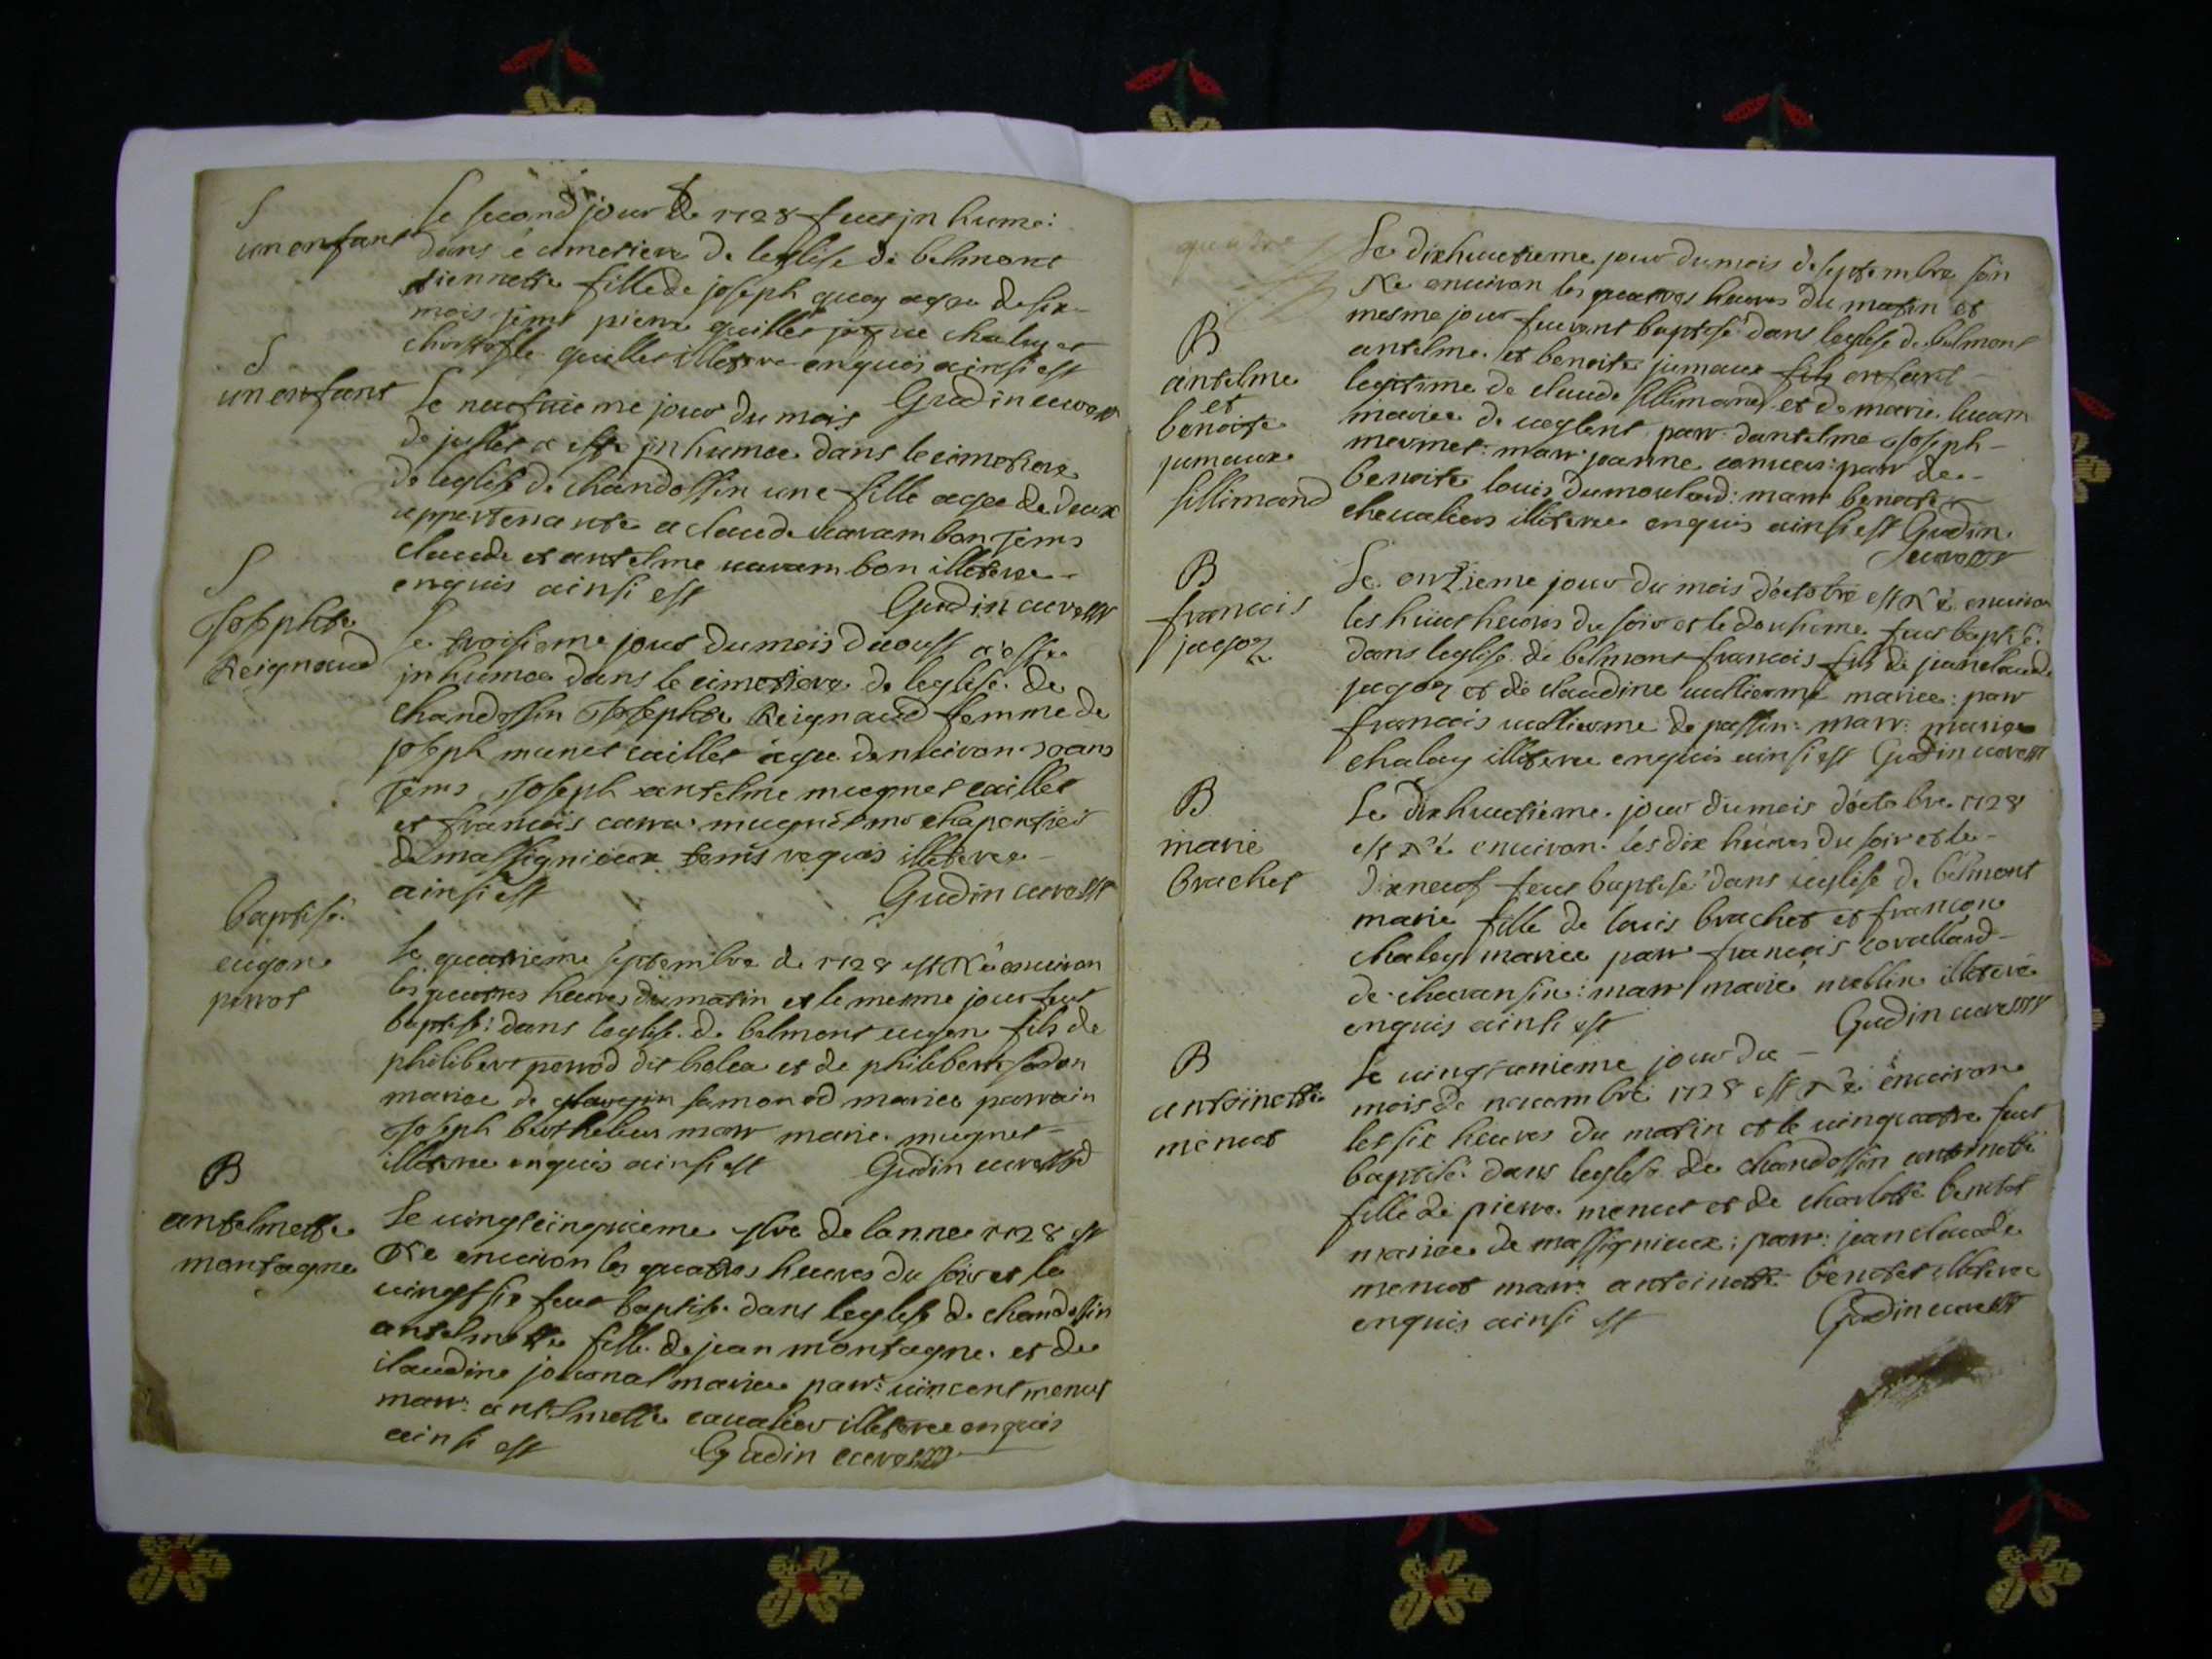 S
un enfant
Le second jour de 1728 fut in humé
dans le cimetiere de leglise de belmont
fille de joseph quoy agee de six
mois pierre quillet chaley et
christofle quillet illeterre enquis ainsi est
Gudin cure
S
un enfant
Le neufuieme jour du mois
de jullet a este inhumee dans le cimetiere
de leglise de chandossin une fille agee de deux
appertenante a claude varambon tems
claude et antelme varambon illeterre
enquis ainsi est
Gudin cure
S
Josephte
Reignaud
Le troisieme jour du mois daoust a este
inhumee dans le cimetiere de leglise de
chandossin Josephte Reignaud femme de
joseph caillet agee denviron ans
tems Joseph antelme mugnet caillet
et francois mugnet chapentier
de massignieux tems requis illeterre
ainsi est
Gudin cure
baptisé
eugene
perrot
Le quatrieme septembre de 1728 est né environ
les quatres heures du matin et le mesme jour fut
baptisé dans leglise de belmont eugene fils de
philibert perrod dit et de philiberte
mariee de samonod mariee parrain
Joseph berthelier marr marie mugnet
illeterre enquis ainsi est
Gudin cure
B
antelmette
montagne
Le vingtcinquieme 7bre de lannee 1728 est
Né environ les quatres heures du soir et le
vingtsix fut baptisé dans leglise de chandossin
antelmette fille de jean montagne et de
claudine mariee parr: vincent menut
marr: antelmette cavalier illeterre enquis
ainsi est
Gudin cure
quatre
B
antelme
et
benoite
jumeaux
sillimand
Le dixhuctieme jour du mois de septembre son
Né environ les quatres heures du matin et
mesme jour furent baptisé dans leglise de belmont
antelme et benoite jumeaux fils enfant
legitime de claude sillimand et de marie
mariee de parr dantelme Joseph
mermet: marr joanne: parr de
benoite louis dumoulard: marr benoite
chevaliere illeterre enquis ainsi est Gudin
cure
B
francois
jugoz
Le onzieme jour du mois d'octobre est Né environ
les huit heures du soir et le douzieme fut baptisé
dans leglise de belmont francois fils de jean claude
jugoz et de claudine vullierme mariee: parr
francois vullierme de passin: marr: marie
chaley illeterre enquis ainsi est Gudin cure
B
marie
brachet
Le dixhuctieme jour du mois d'octobre 1728
est Né environ les dix heures du soir et le
dixneuf fut baptisé dans leglise de belmont
marie fille de louis brachet et francoise
chaley mariee parr francois
de: marr marie mollin illeterre
enquis ainsi est
Gudin cure
B
antoinette
menut
Le vingtunieme jour du
mois de novembre 1728 est Né environ
les six heures du matin et le vingquatre fut
baptisé dans leglise de chandossin antoinette
fille de pierre menut et de charlotte benetet
mariee de massignieux: parr: jean claude
menut marr: antoinette benetet illeterre
enquis ainsi est
Gudin cure